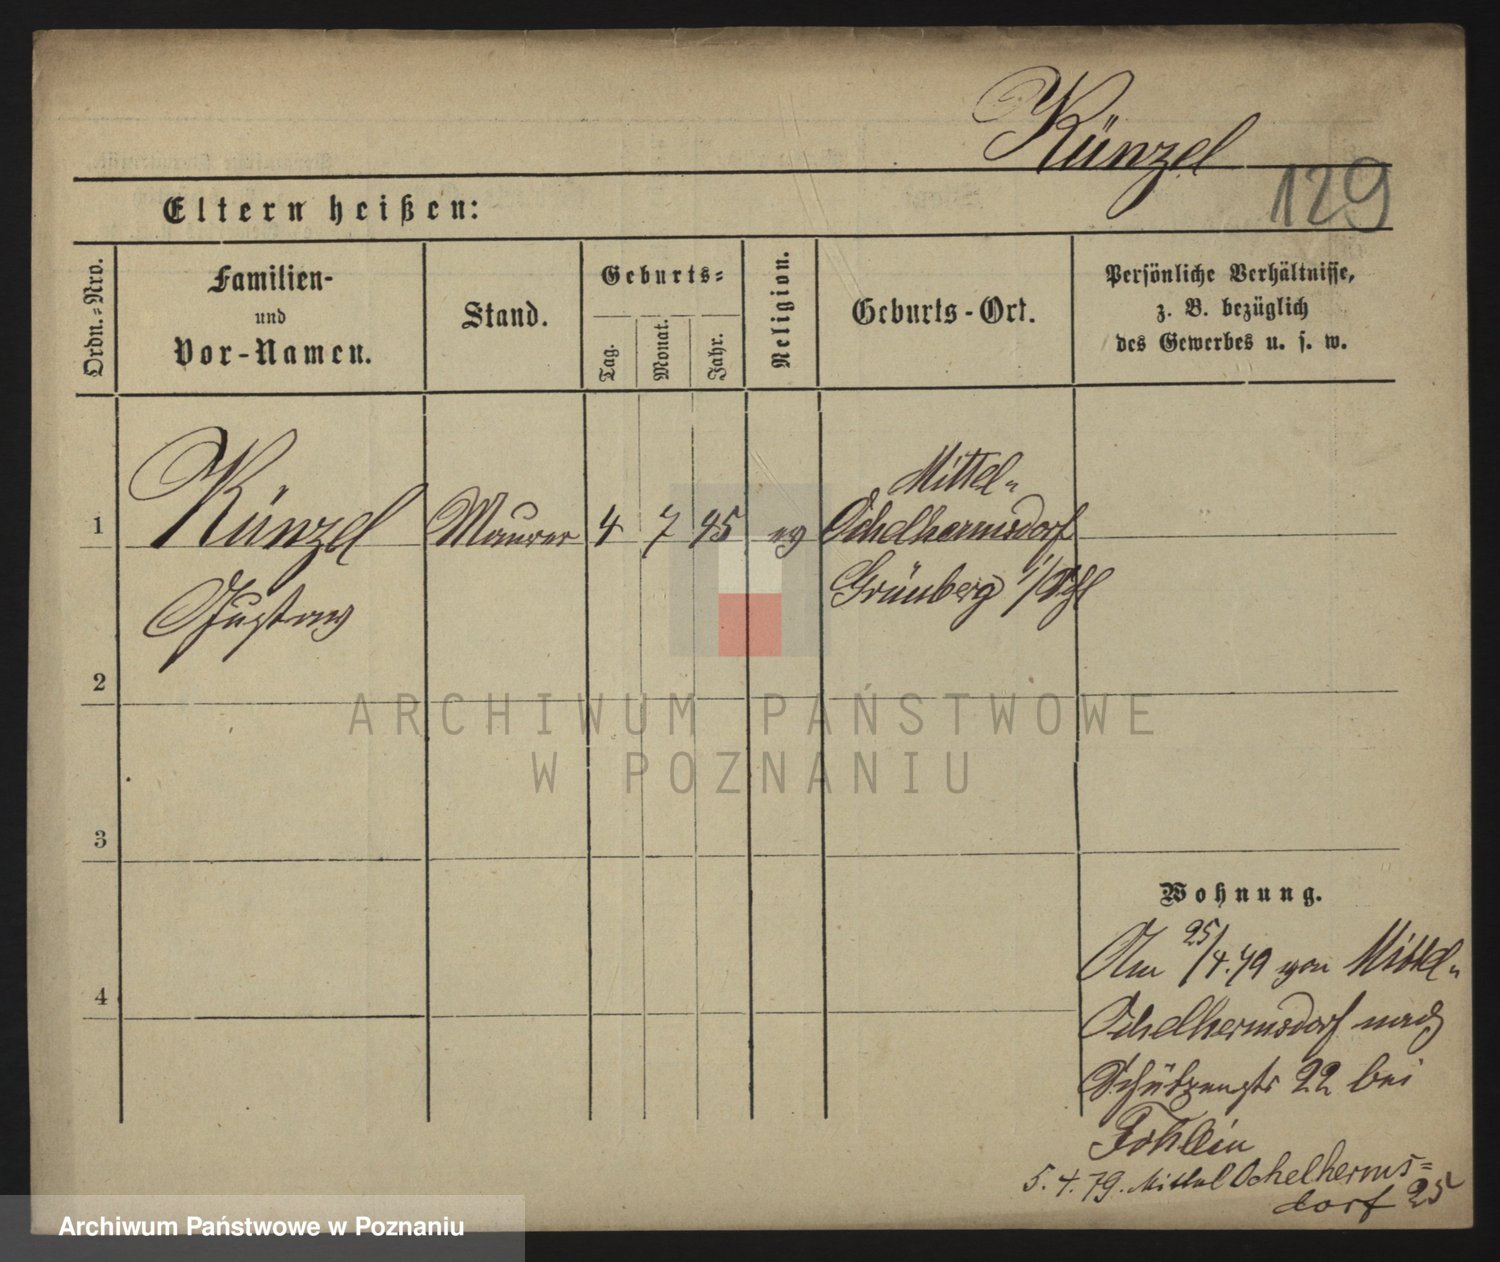 Künzel
129
Eltern heißen:
Ordn.-Nro.
Familien-
und
Vor-Namen.
Stand.
Geburts-
Tag.
Monat.
Jahr.
Religion.
Geburts-Ort.
Persönliche Verhältnisse,
z. B. bezüglich
des Gewerbes u. s. w.
1
Künzel
Gustav
Maurer
4
7
45
ev
Mittel-
Ochelhermsdorf
Grünberg i/Schl
2
3
4
Wohnung.
Am 25/4.79 von Mittel-
Ochelhermsdorf nach
Schützenstr 22 bei
5.4.79. Mittel Ochelherms=
dorf 25
ARCHIWUM PAŃSTWOWE
W POZNANIU
Archiwum Państwowe w Poznaniu